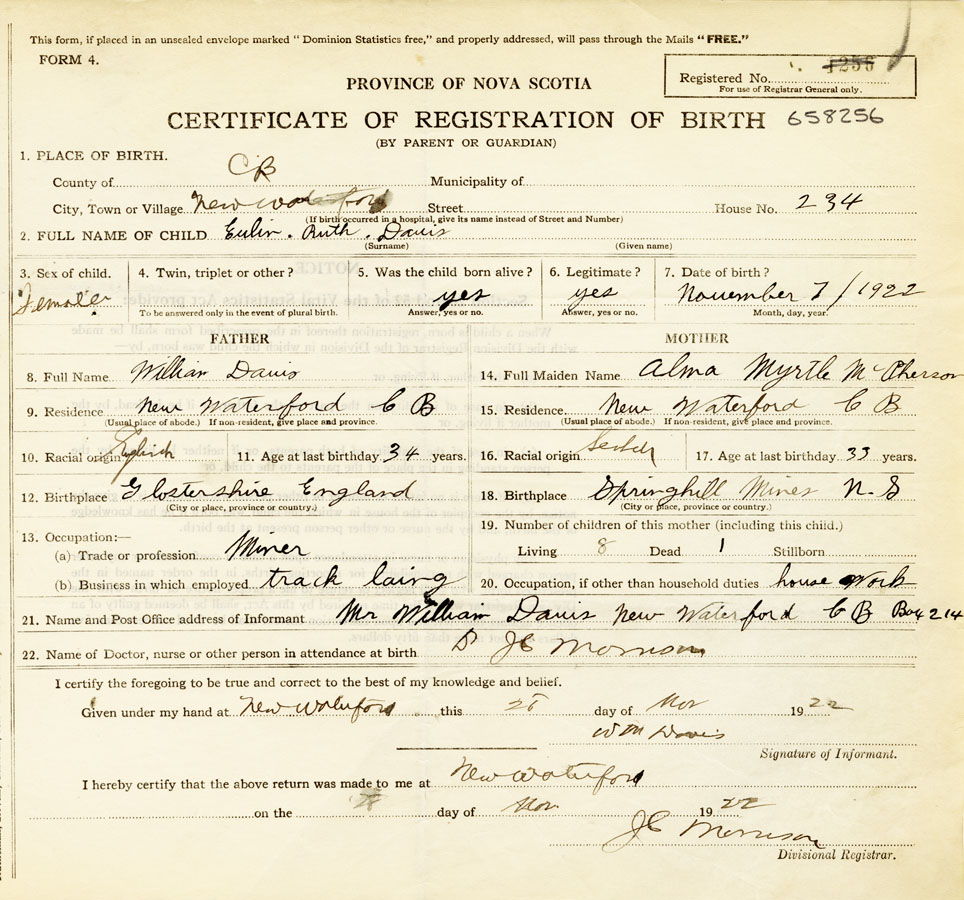 This form, if placed in an unsealed envelope marked "Dominion Statistics free," and properly addressed, will pass through the Mails "FREE."
FORM 4.
Registered No. 1256
For use of Registrar General only.
PROVINCE OF NOVA SCOTIA
CERTIFICATE OF REGISTRATION OF BIRTH 658256
(BY PARENT OR GUARDIAN)
1. PLACE OF BIRTH.
County of CB Municipality of
City, Town or Village New Waterford Street House No. 234
(If birth occurred in a hospital, give its name instead of Street and Number)
2. FULL NAME OF CHILD Eulin. Ruth. Davis
(Surname) (Given name)
3. Sex of child. 4. Twin, triplet or other? 5. Was the child born alive? 6. Legitimate? 7. Date of birth?
Female yes yes November 7/1922
To be answered only in the event of plural birth. Answer, yes or no. Answer, yes or no. Month, day, year.
FATHER MOTHER
8. Full Name William Davis 14. Full Maiden Name Alma Myrtle McPherson
9. Residence New Waterford C B 15. Residence New Waterford C B
(Usual place of abode.) If non-resident, give place and province. (Usual place of abode.) If non-resident, give place and province.
10. Racial origin English 11. Age at last birthday 34 years. 16. Racial origin Scotch 17. Age at last birthday 33 years.
12. Birthplace Glostershire England 18. Birthplace Springhill Mines N. S
(City or place, province or country.) (City or place, province or country.)
13. Occupation:— 19. Number of children of this mother (including this child.)
(a) Trade or profession Miner Living 8 Dead 1 Stillborn
(b) Business in which employed track laing 20. Occupation, if other than household duties house work
21. Name and Post Office address of Informant Mr William Davis New Waterford C B Box 214
22. Name of Doctor, nurse or other person in attendance at birth Dr JC Morrison
I certify the foregoing to be true and correct to the best of my knowledge and belief.
Given under my hand at New Waterford this day of Nov 1922
Wm Davis
Signature of Informant.
I hereby certify that the above return was made to me at New Waterford
on the 28 day of Nov 1922
JC Morrison
Divisional Registrar.